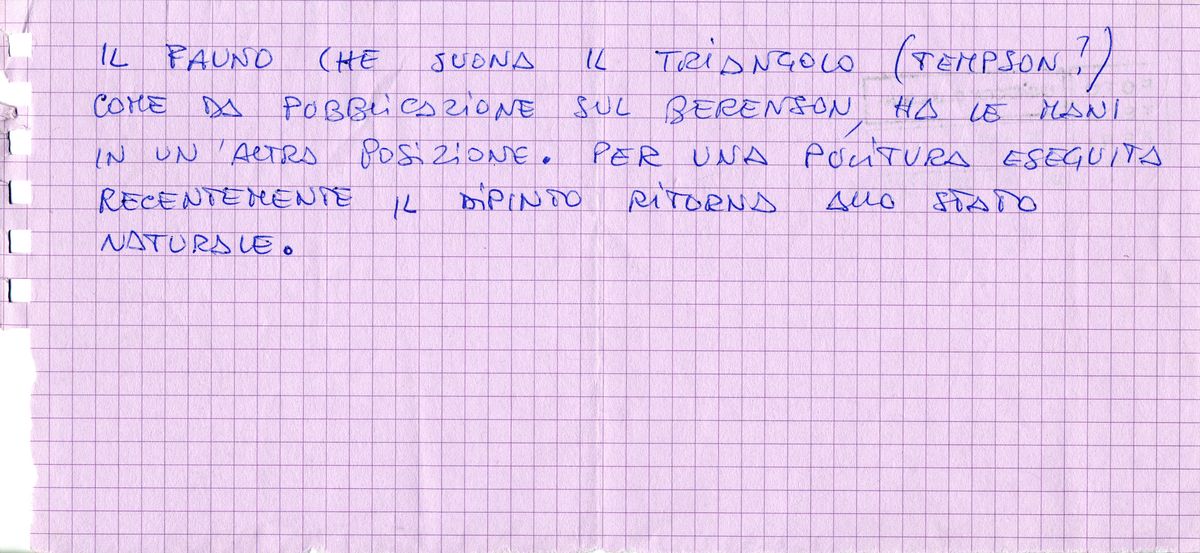 IL FAUNO CHE SUONA IL TRIANGOLO (TEMPSON?)
COME DA PUBBLICAZIONE SUL BERENSON, HA LE MANI
IN UN'ALTRA POSIZIONE. PER UNA PULITURA ESEGUITA
RECENTEMENTE IL DIPINTO RITORNA ALLO STATO
NATURALE.